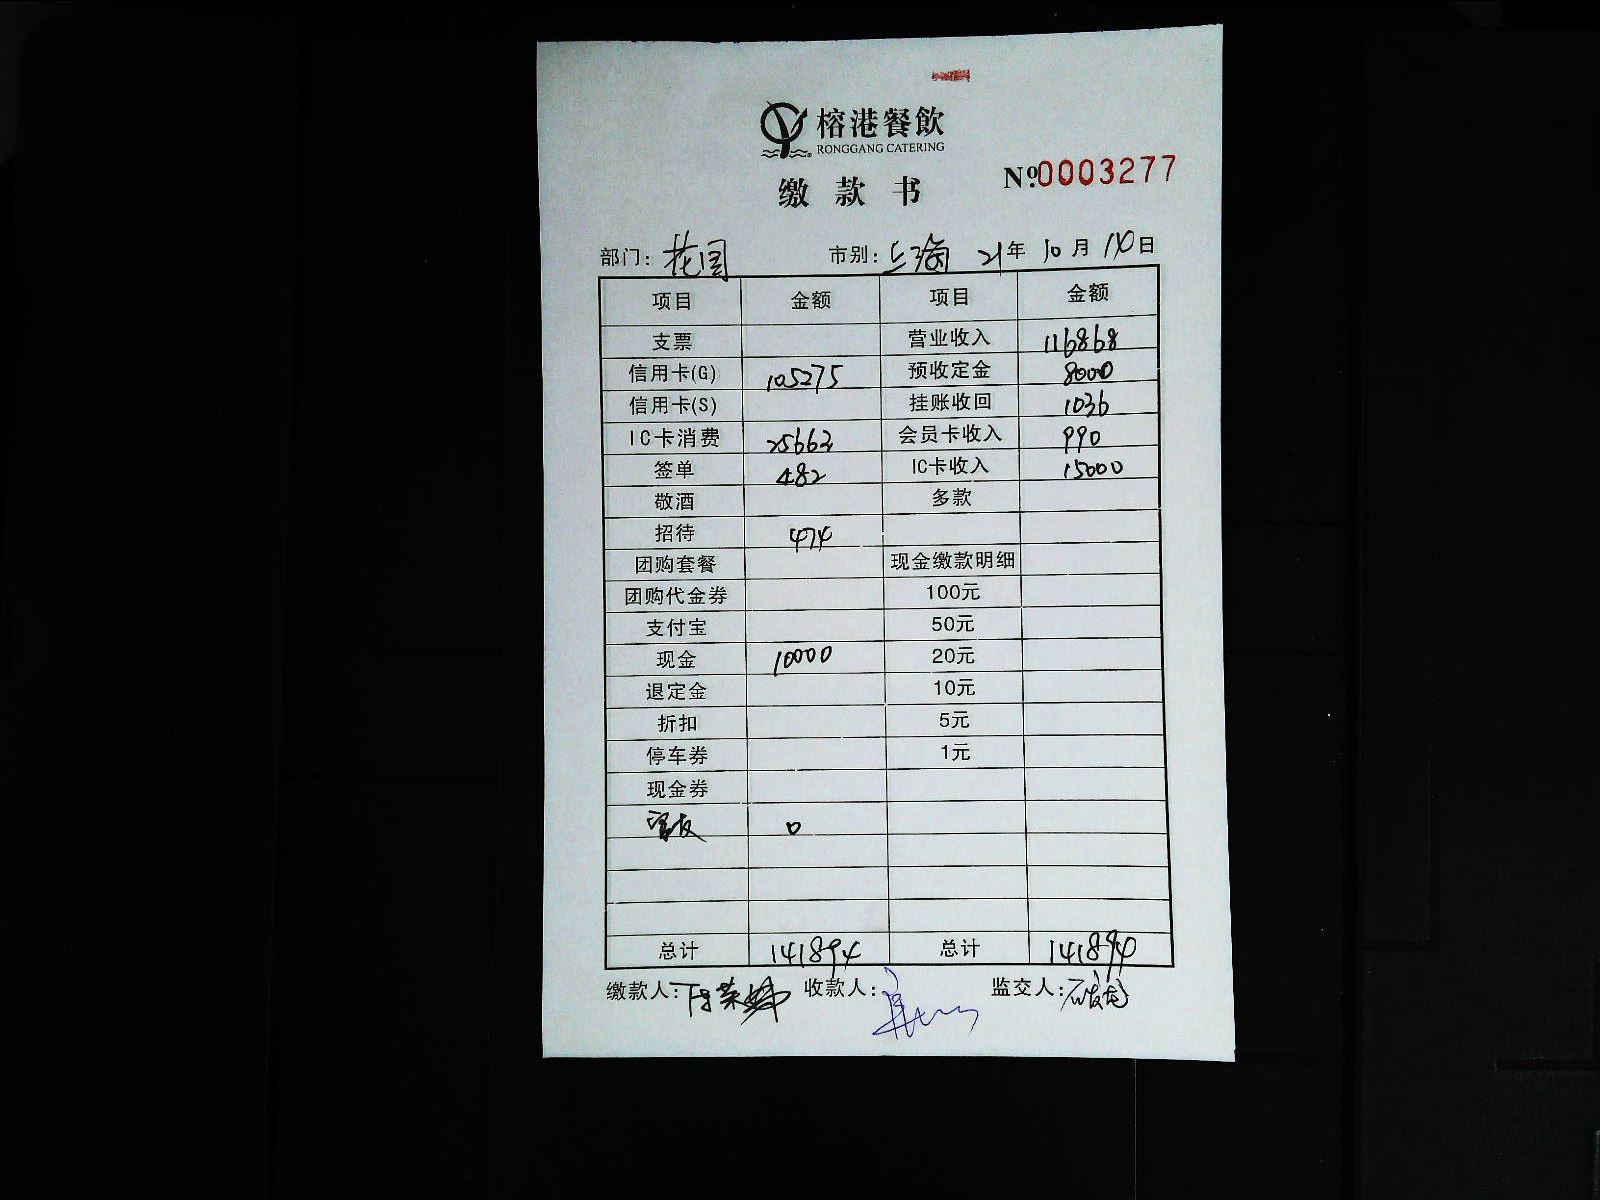 榕港餐飲
RONGGANG CATERING
缴款书
№0003277
部门: 花园 市别: 上海 21年 10月 14日
项目 金额 项目 金额
支票 营业收入 116868
信用卡(G) 105275 预收定金 8000
信用卡(S) 挂账收回 1036
IC卡消费 25663 会员卡收入 990
签单 482 IC卡收入 15000
敬酒 多款
招待 474
团购套餐 现金缴款明细
团购代金券 100元
支付宝 50元
现金 10000 20元
退定金 10元
折扣 5元
停车券 1元
现金券
0
总计 141894 总计 141894
缴款人: 收款人: 监交人: